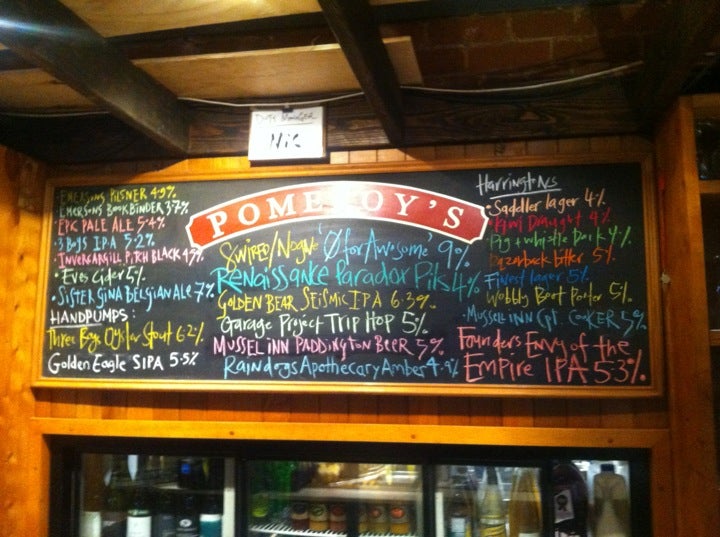 Duty Manager
Nic
POMEROY'S
• EMERSONS PILSNER 4.9%
• EMERSONS BOOKBINDER 3.7%
• EPIC PALE ALE 5.4%
• 3 BOYS I.P.A 5.2%
• INVERCARGILL PITCH BLACK 4.5%
• Eves Cider 5%
• SISTER GINA BELGIAN ALE 7%
HANDPUMPS:
Three Boys Oyster Stout 6.2%
Golden Eagle SIPA 5.5%
SWIRED/NOGNE 'Ø for Awesome' 9%
Renaissance Paradox Pils 4%
GOLDEN BEAR SEISMIC IPA 6.3%
Garage Project TRIP HOP 5%
MUSSEL INN PADDINGTON BEER 5%
Raindogs Apothecary Amber 4.9%
Harringtons
• Saddler lager 4%
• Kiwi Draught 4%
• Pig + whistle Dark 4%
• Razorback bitter 5%
• Finest lager 5%
• Wobbly Boot Porter 5%
• MUSSEL INN CPT. COOKER 5%
Founders Envy of the
Empire IPA 5.3%